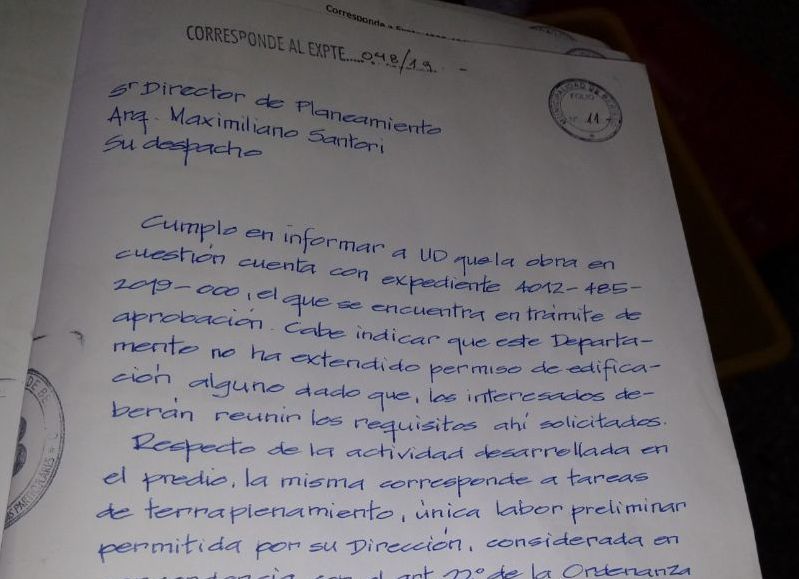 Corresponde
CORRESPONDE AL EXPTE..... 048/19. -
MUNICIPALIDAD DE
FOLIO
Nº 11 -
Sr Director de Planeamiento
Arq. Maximiliano Santori
Su despacho
Cumplo en informar a UD que la obra en
cuestión cuenta con expediente 4012-485-
2019-000, el que se encuentra en trámite de
aprobación. Cabe indicar que este Departa-
mento no ha extendido permiso de edifica-
ción alguno dado que, los interesados de-
berán reunir los requisitos ahí solicitados.
Respecto de la actividad desarrollada en
el predio, la misma corresponde a tareas
de terraplenamiento, única labor preliminar
permitida por su Dirección, considerada en
de la Ordenanza
DE BE
PARTICULARES